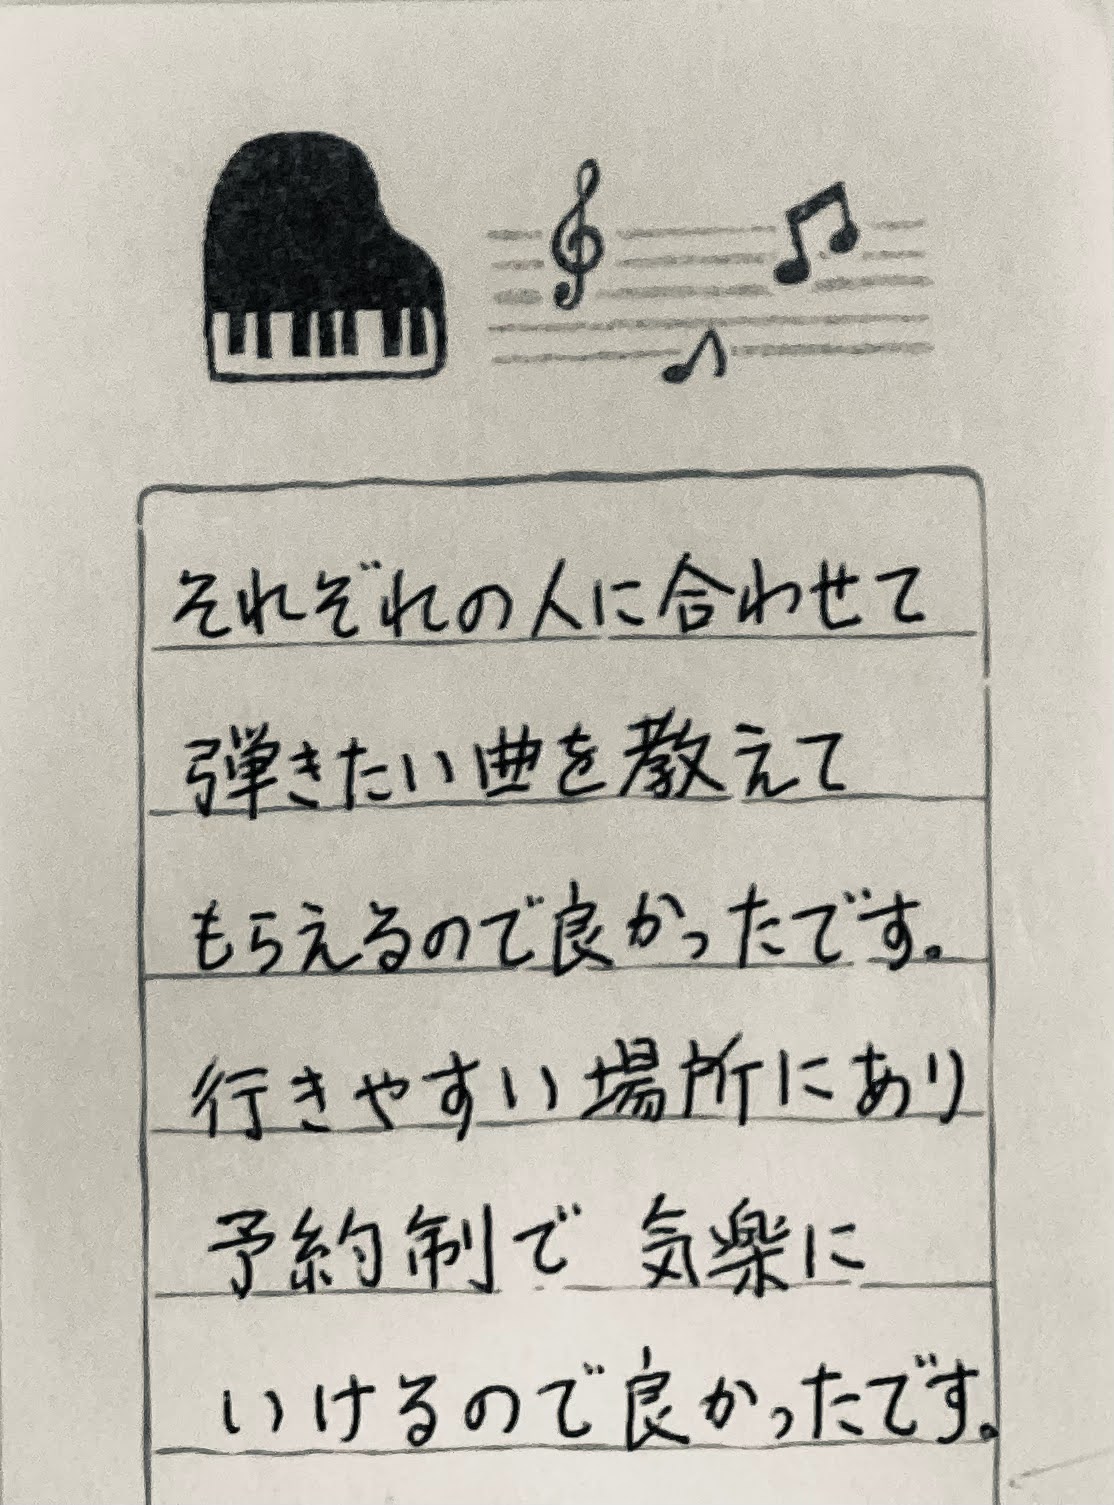 それぞれの人に合わせて
弾きたい曲を教えて
もらえるので良かったです。
行きやすい場所にあり
予約制で 気楽に
いけるので良かったです。